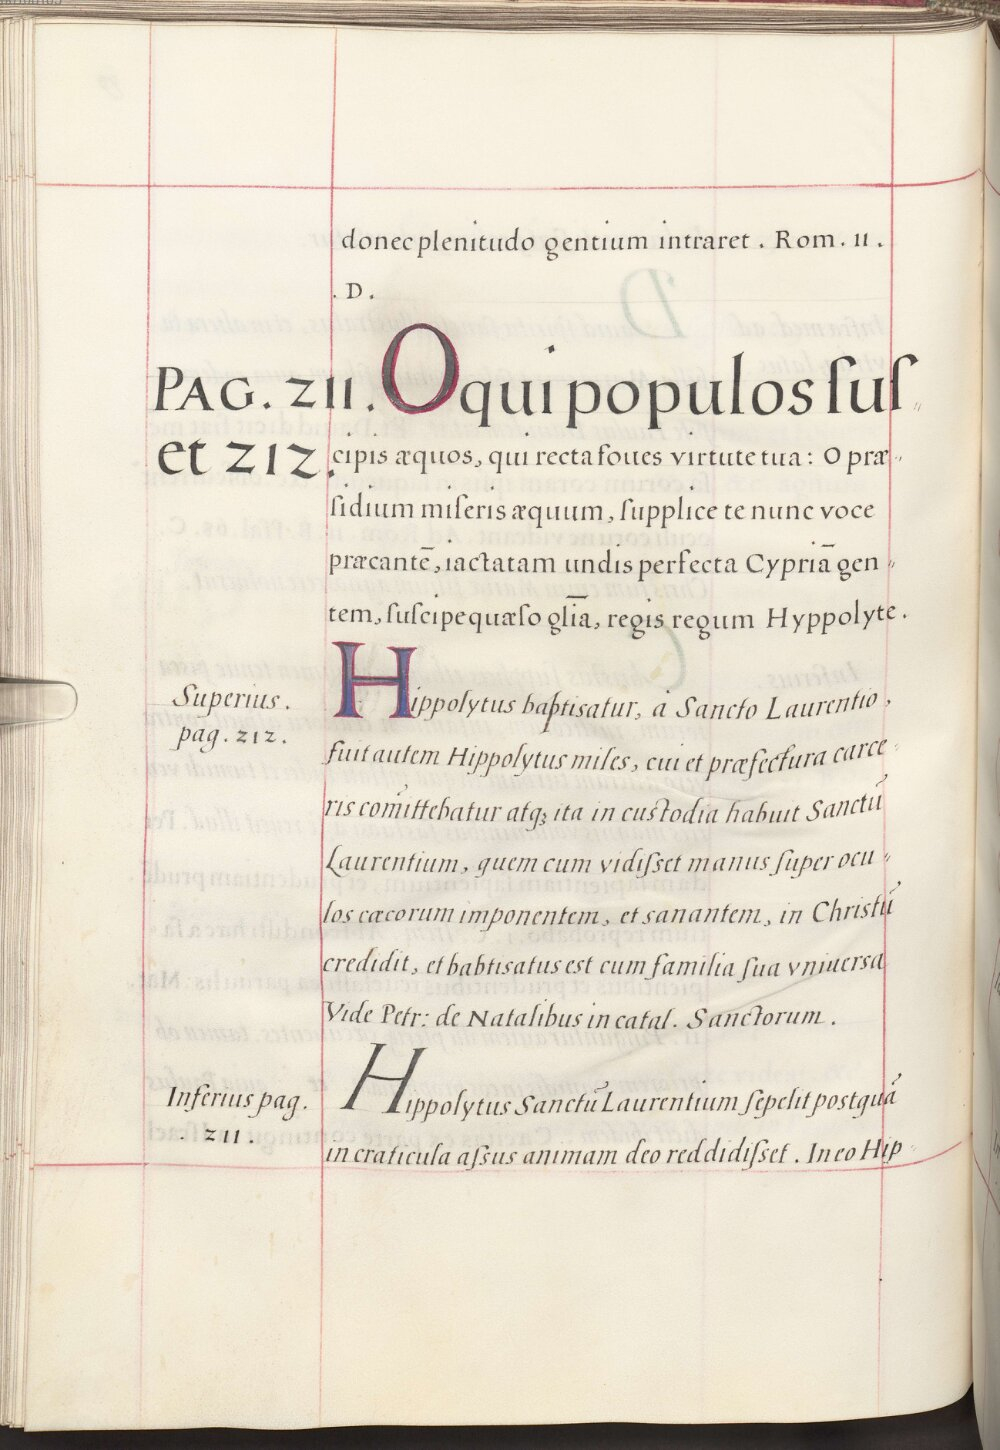 donec plenitudo gentium intraret . Rom . 11 .
. D .
PAG . 211 .
et 212 .
O qui populos ſuſ〃
cipis æquos, qui recta foues virtute tua : O præ〃
ſidium miſeris æquum, ſupplice te nunc voce
præcantē, iactatam undis perfecta Cypriā gen〃
tem, ſuſcipe quæſo glīa, regis regum Hyppolyte .
Superius .
pag . 212 .
Hippolytus baptisatur, a Sancto Laurentio,
fuit autem Hippolytus miles, cui et præfectura carce〃
ris com̃ittebatur atqꝫ ita in custodia habuit Sanctū
Laurentium, quem cum vidiſset manus ſuper ocu〃
los cæcorum imponentem, et sanantem, in Christū
credidit, et babtisatus est cum familia ſua vniuersa
Vide Petr: de Natalibus in catal . Sanctorum .
Inferius pag .
. 211 .
Hippolytus Sanctū Laurentium ſepelit postquā
in craticula aſsus animam deo reddidiſset . In eo Hip〃